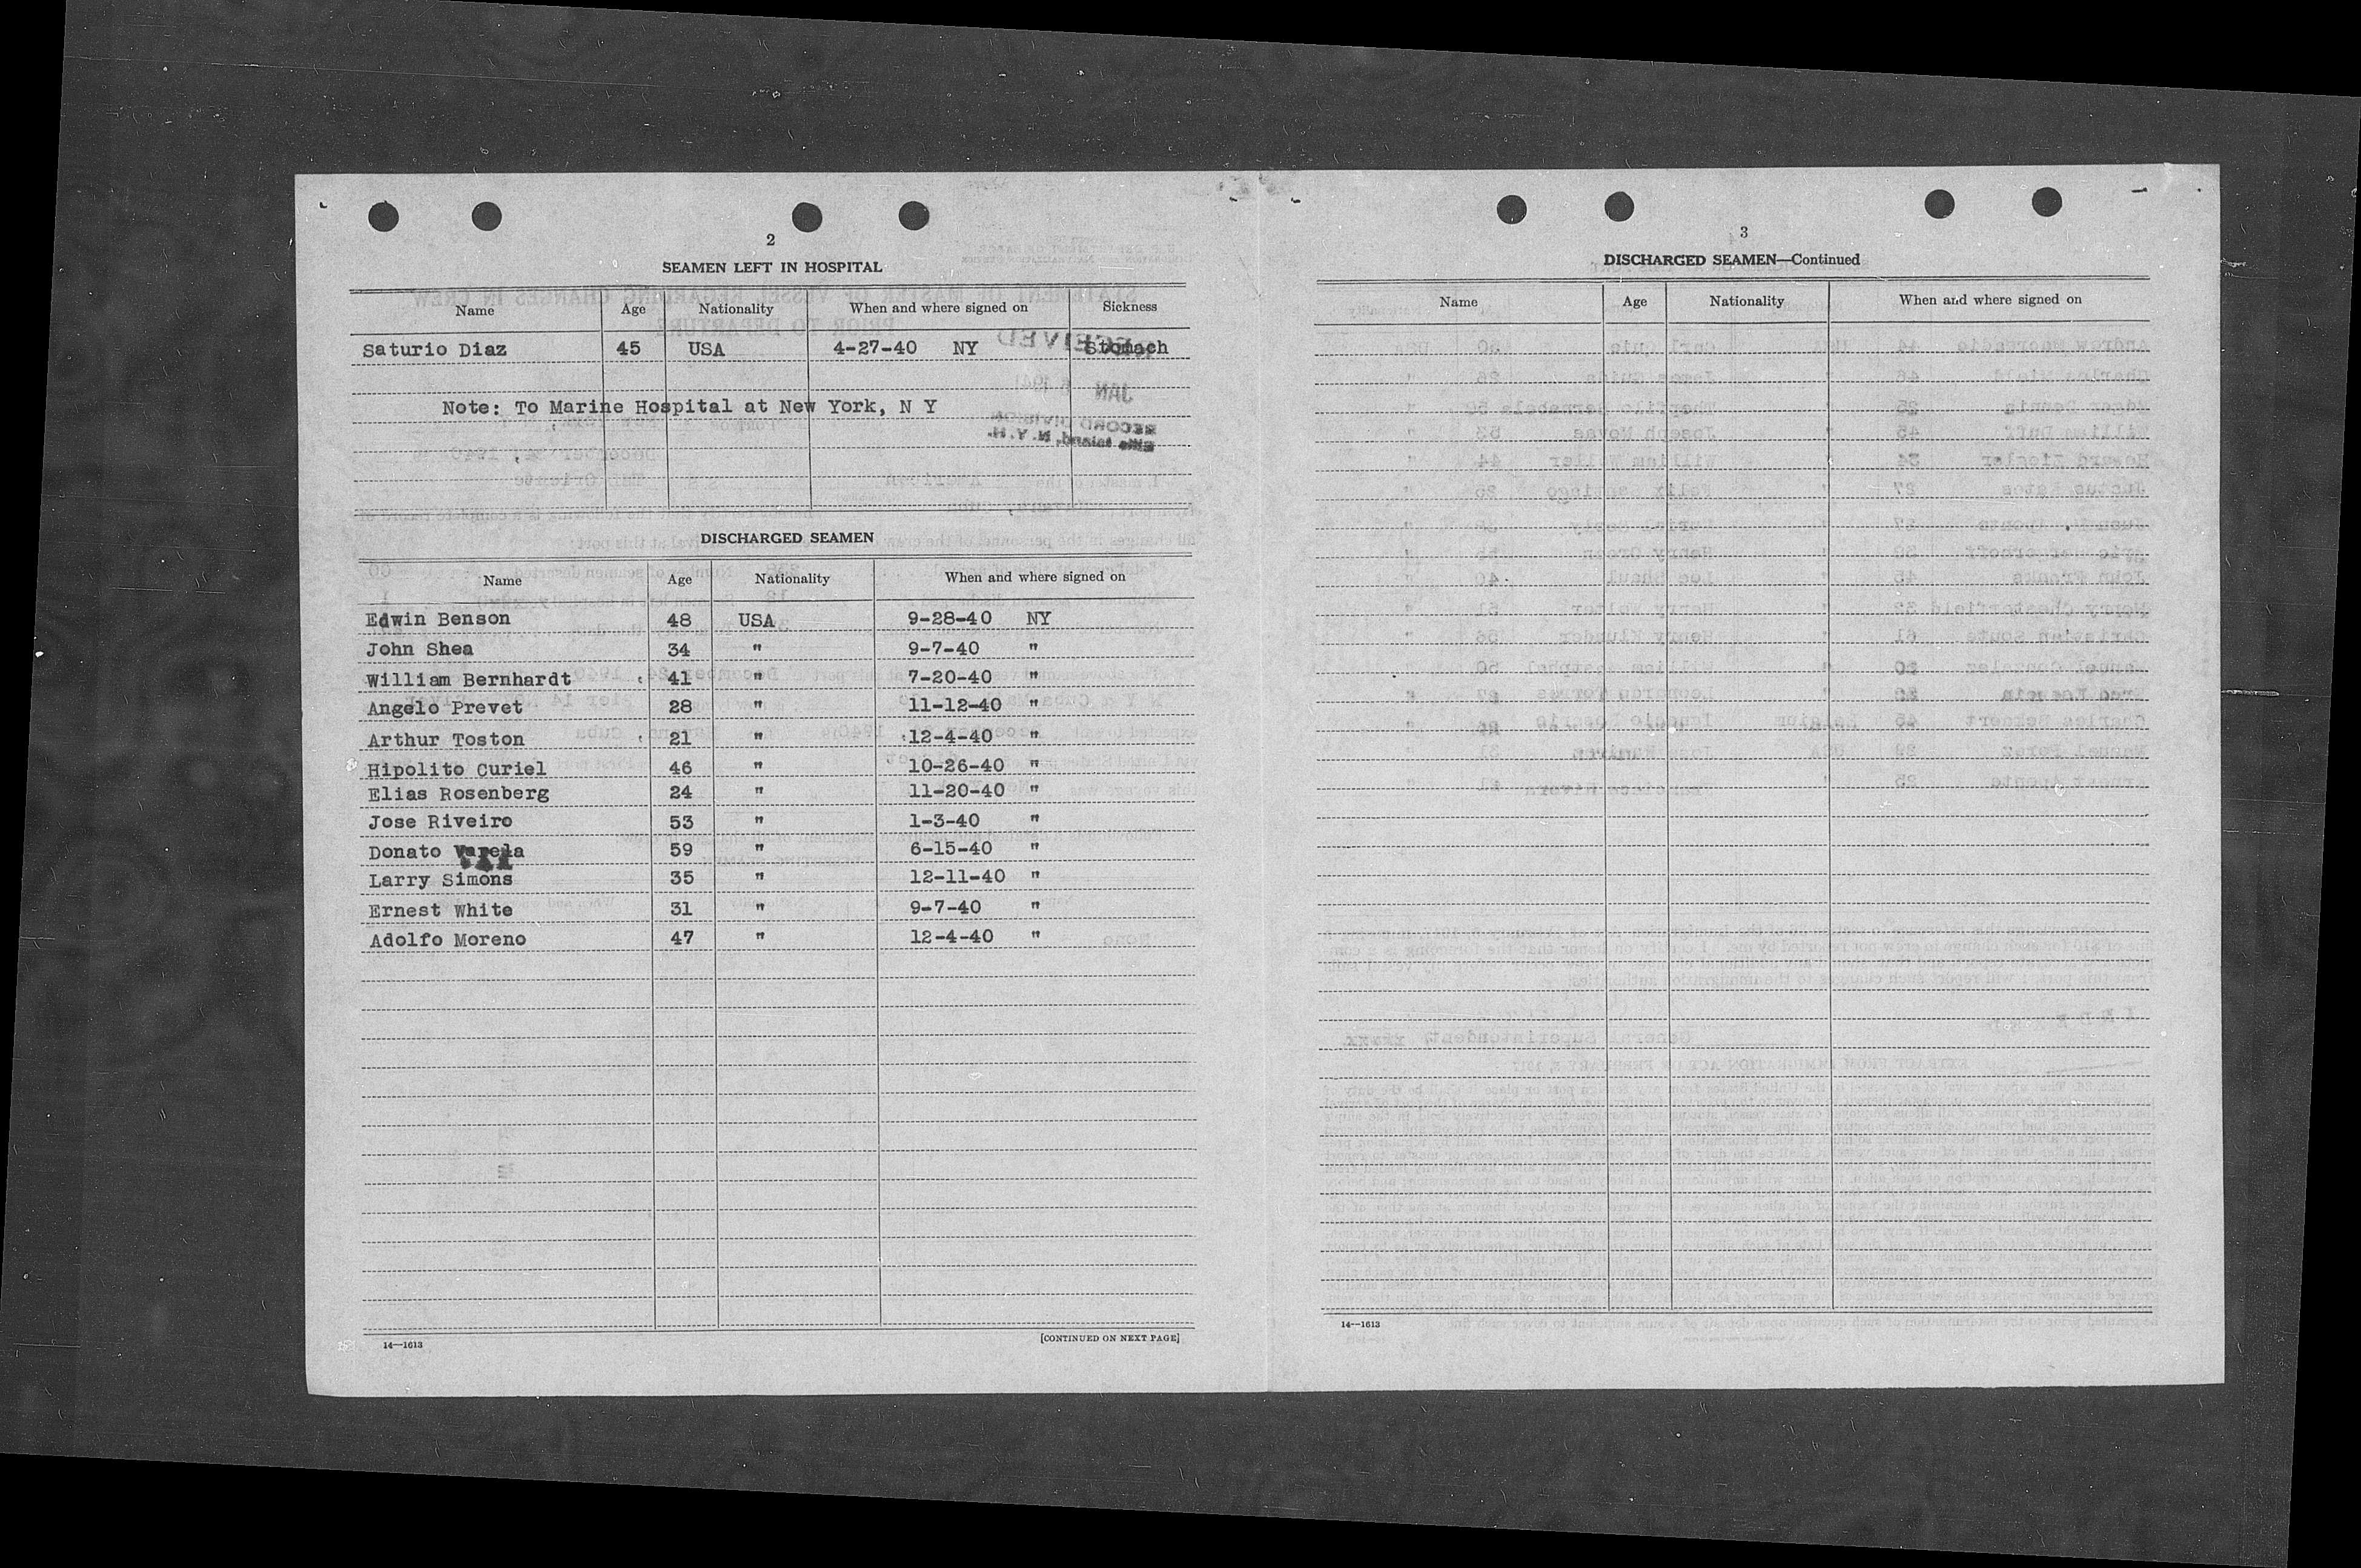 2
SEAMEN LEFT IN HOSPITAL
Name Age Nationality When and where signed on Sickness
Saturio Diaz 45 USA 4-27-40 NY Stomach
Note: To Marine Hospital at New York, N Y
DISCHARGED SEAMEN
Name Age Nationality When and where signed on
Edwin Benson 48 USA 9-28-40 NY
John Shea 34 " 9-7-40 "
William Bernhardt 41 " 7-20-40 "
Angelo Prevet 28 " 11-12-40 "
Arthur Toston 21 " 12-4-40 "
Hipolito Curiel 46 " 10-26-40 "
Elias Rosenberg 24 " 11-20-40 "
Jose Riveiro 53 " 1-3-40 "
Donato Varela 59 " 6-15-40 "
Larry Simons 35 " 12-11-40 "
Ernest White 31 " 9-7-40 "
Adolfo Moreno 47 " 12-4-40 "
14—1613 [CONTINUED ON NEXT PAGE]
3
DISCHARGED SEAMEN—Continued
Name Age Nationality When and where signed on
14—1613